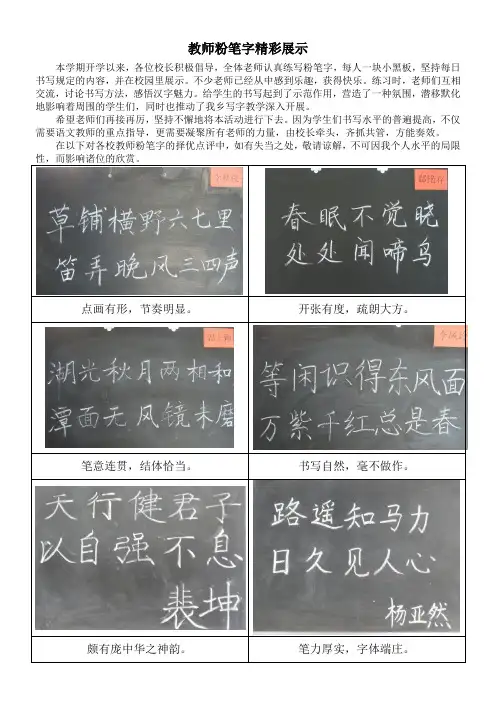 教师粉笔字精彩展示
本学期开学以来，各位校长积极倡导，全体老师认真练写粉笔字，每人一块小黑板，坚持每日
书写规定的内容，并在校园里展示。不少老师已经从中感到乐趣，获得快乐。练习时，老师们互相
交流，讨论书写方法，感悟汉字魅力。给学生的书写起到了示范作用，营造了一种氛围，潜移默化
地影响着周围的学生们，同时也推动了我乡写字教学深入开展。
希望老师们再接再厉，坚持不懈地将本活动进行下去。因为学生们书写水平的普遍提高，不仅
需要语文教师的重点指导，更需要凝聚所有老师的力量，由校长牵头，齐抓共管，方能奏效。
在以下对各校教师粉笔字的择优点评中，如有失当之处，敬请谅解，不可因我个人水平的局限
性，而影响诸位的欣赏。
草铺横野六七里
笛弄晚风三四声
春眠不觉晓
处处闻啼鸟
点画有形，节奏明显。
开张有度，疏朗大方。
湖光秋月两相和
潭面无风镜未磨
等闲识得东风面
万紫千红总是春
笔意连贯，结体恰当。
书写自然，毫不做作。
天行健君子
以自强不息
裴坤
路遥知马力
日久见人心
杨亚然
颇有庞中华之神韵。
笔力厚实，字体端庄。